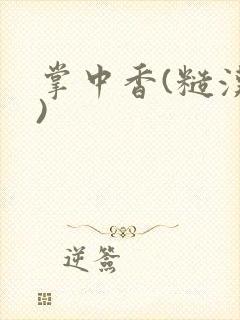 掌中香(糙汉
)
逆簷